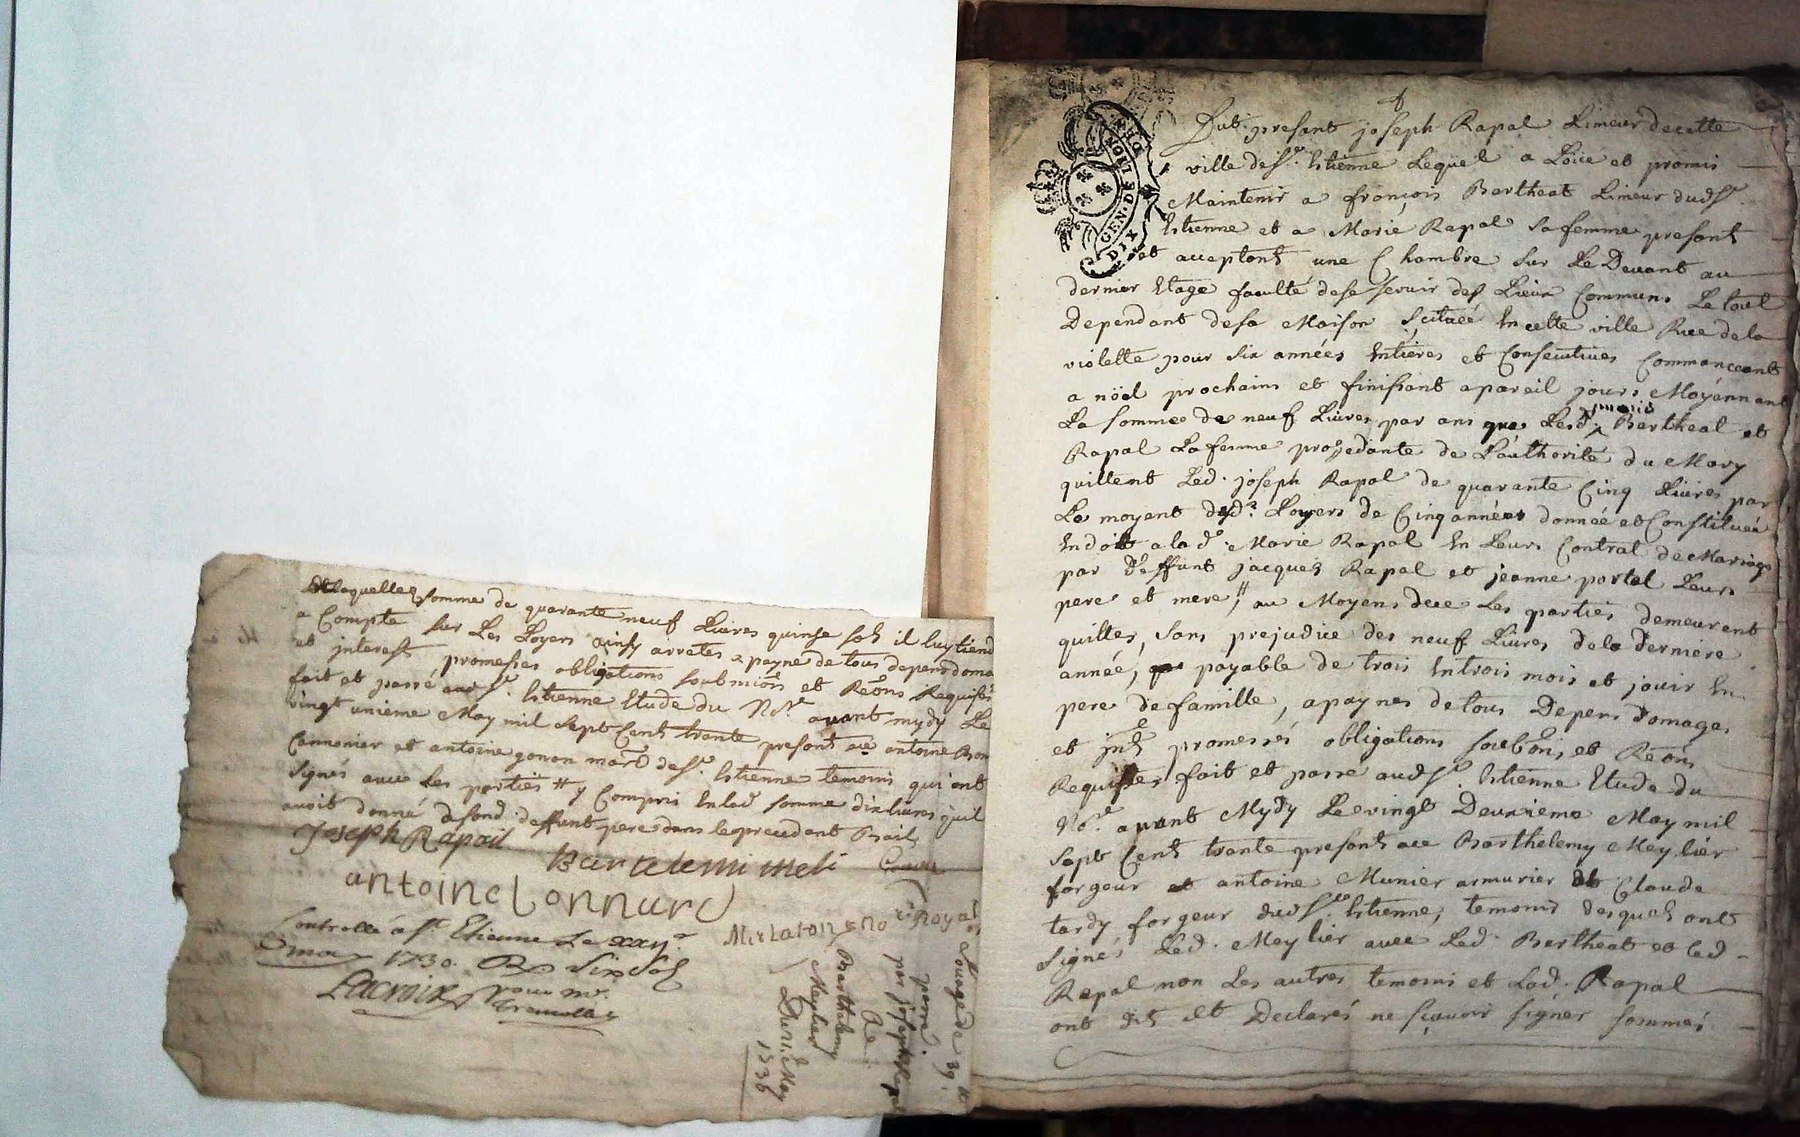 laquelle somme de quarante neuf Livres quinse sols il luy tiend
a Compte sur Les Loyers ainsy arretés a payne de tous depens doma
et interests promesses obligations soubmions et Reons Requises
fait et passé aud St. Etienne Etude du Nore. avant mydy Le
vingt unieme May mil sept Cent trante presents antoine
Cannonier et antoine gonon mard de St. Etienne temoins qui ont
signés avec Les parties # y Compris En lad somme dix livres qu'il
avoit donné defend deffunt pere dans le precedent Bail
Joseph Rapail
Bartelemi meli
antoine Lonnard
not Royal
Controllé a St. Etienne Le xxiie.
may 1730. R Six Sols
Lacroix pour mr.
Louage de 39
passé
par joseph Rapal
Ae
Barthelemy
Meylier
Du 21 May
1730
Fut presant joseph Rapal Limeur de cette
ville de St. Etienne Lequel a Loüé et promis
Maintenir a françois Bertheat Limeur dud St.
Etienne et a Marie Rapal sa femme presant
et acceptant une Chambre sur Le Devant au
dernier Etage faculté de se servir des Lieux Communs Le tout
Dependant de sa Maison Scituée En cette ville Rue de la
violette pour six années Entieres et Consecutives Commanceant
a nöel prochains et finissant a pareil jours, Moyennent
La somme de neuf Livres par ans que Lesd. mariés Bertheat et
Rapal La femme procedante de L'authorité du Mary
quittent Led. joseph Rapal de quarante Cinq Livres par
Le moyent desd. Loyers de Cinq années donnée et Constituée
En dot a lad. Marie Rapal En Leurs Contrat de Mariage
par deffunt jacques Rapal et jeanne portel Leurs
pere et mere, # au Moyens de ce Les parties demeurent
quittes, sans prejudice des neuf Livres de la Derniere
année, payable de trois En trois mois et jouir En
pere de famille, a paynes de tous Depens Domages
et jnt. promesses obligations soubons et Reons
Requises, fait et passé aud St. Etienne Etude du
Nore. avant Mydy Le vingt Deuxieme May mil
sept Cent trante presants Barthelemy Meylier
forgeur et antoine Munier armurier et Claude
tardy forgeur dud St. Etienne, temoins desquels ont
signés Led. Meylier avec Led. Bertheat et Led
Rapal non Les autres temoins et Lad. Rapal
ont dit et Declarés ne sçavoir signer sommés
GEN. DE LION
DIX DEN.